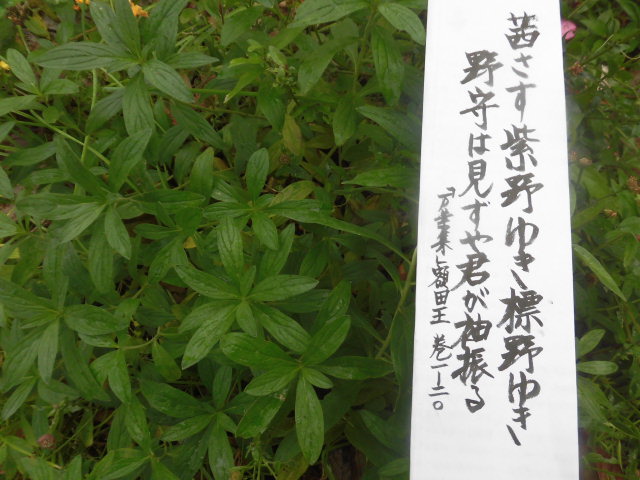 茜さす紫野ゆき標野ゆき
野守は見ずや君が袖振る
『万葉集』額田王 巻一–二〇